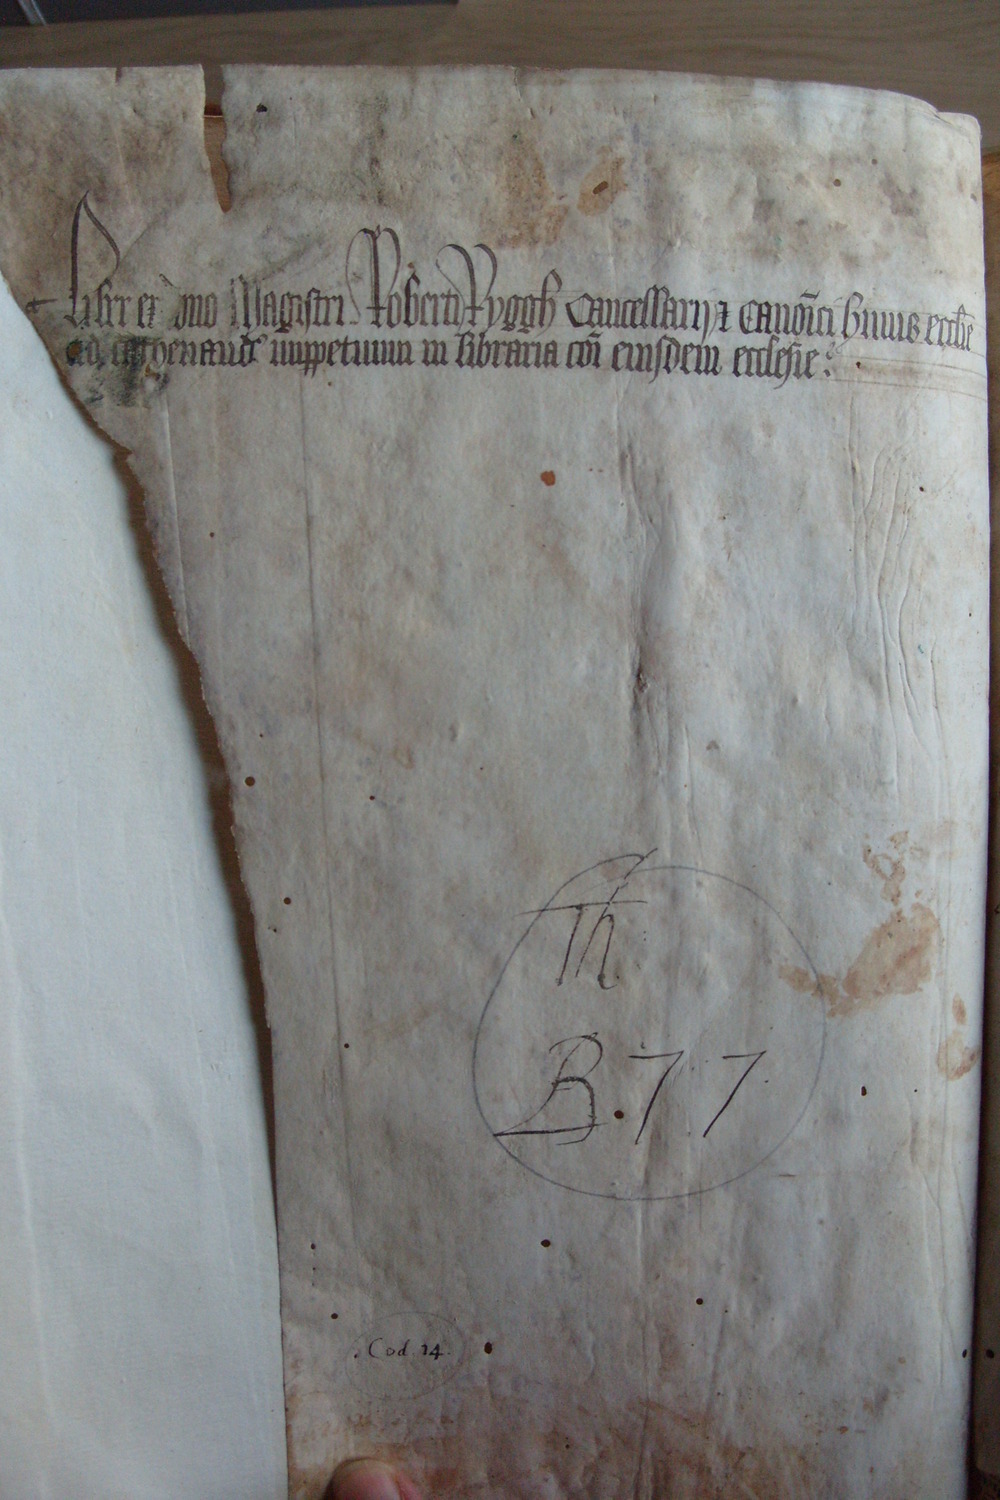 Liber ex dono Magistri Roberti Ryggh Cancellarij & Canonici huius ecclie
ad cathenand' imppetuum in libraria coi eiusdem ecclesie
Th
B. 7 7
. Cod. 14.